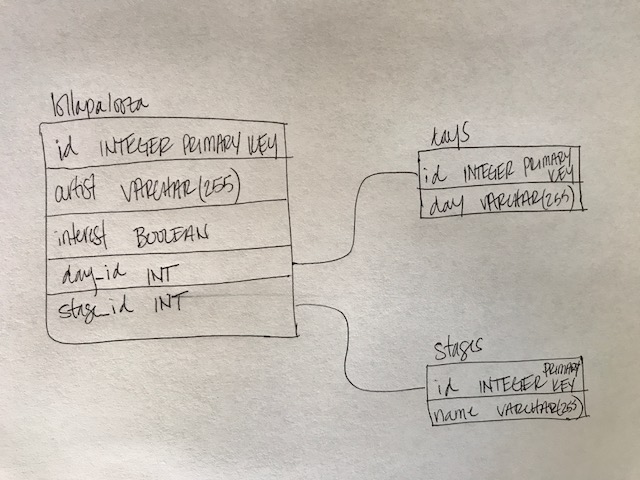 lollapalooza
id INTEGER PRIMARY KEY
artist VARCHAR(255)
interest BOOLEAN
day_id INT
stage_id INT
days
id INTEGER PRIMARY
KEY
day VARCHAR(255)
stages
id INTEGER PRIMARY
KEY
name VARCHAR(255)